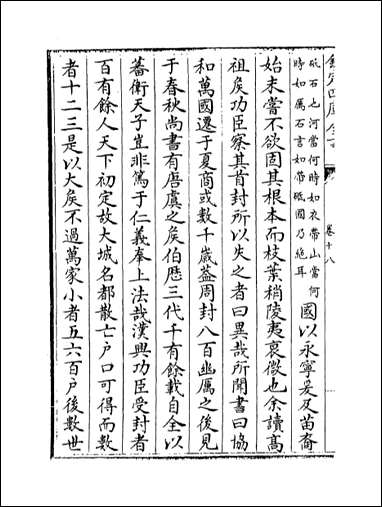 欽定四庫全書
卷十八
砥石也河當何時如衣帶山當何
時如厲石言如帶砥國乃絶耳
國以永寧爰及苗裔
始未嘗不欲固其根本而枝葉稍陵夷衰微也余讀高
祖矦功臣察其首封所以失之者曰異哉所聞書曰協
和萬國遷于夏商或數千歲葢周封八百幽厲之後見
于春秋尚書有唐虞之矦伯歴三代千有餘載自全以
蕃衛天子豈非篤于仁義奉上法哉漢興功臣受封者
百有餘人天下初定故大城名都散亡户口可得而數
者十二三是以大矦不過萬家小者五六百户後數世